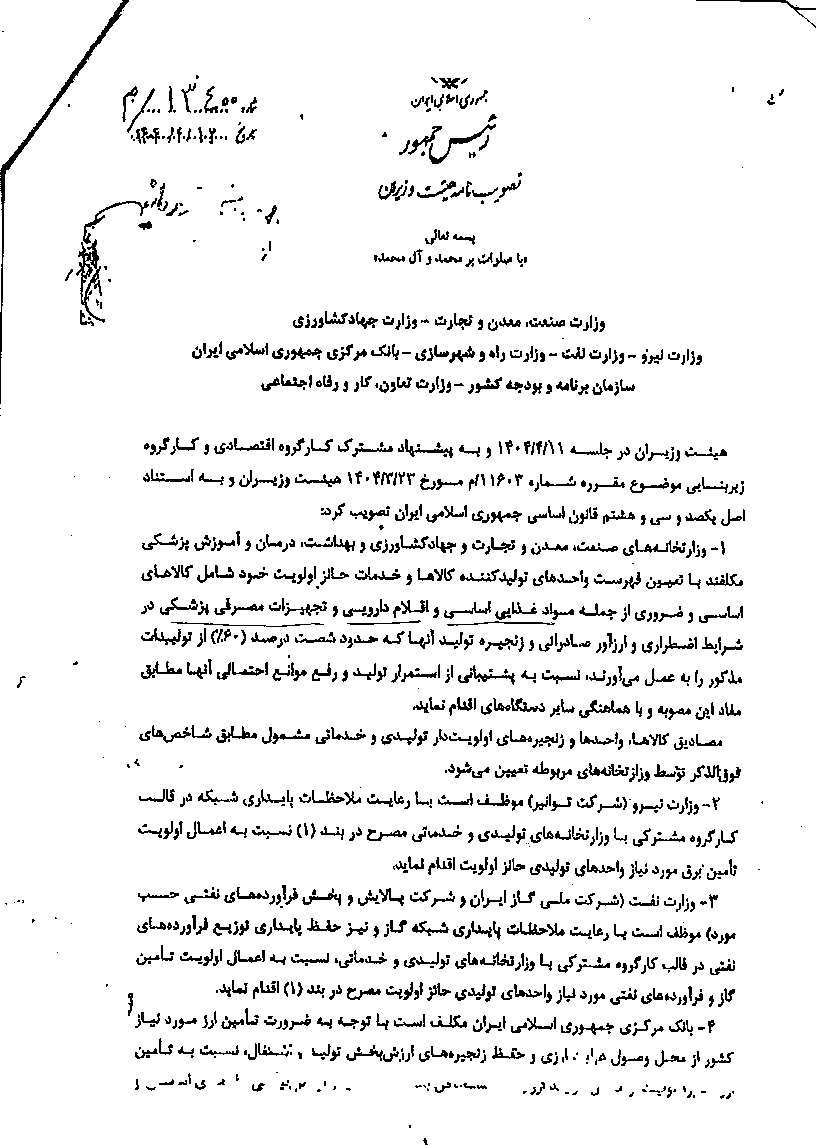 جمهوری اسلامی ایران
رئیس جمهور
تصویب نامه هیئت وزیران
بسمه تعالی
«با صلوات بر محمد و آل محمد»
وزارت صنعت، معدن و تجارت - وزارت جهادکشاورزی
وزارت نیرو - وزارت نفت - وزارت راه و شهرسازی - بانک مرکزی جمهوری اسلامی ایران
سازمان برنامه و بودجه کشور - وزارت تعاون، کار و رفاه اجتماعی
هیئت وزیران در جلسه ۱۴۰۴/۴/۱۱ و به پیشنهاد مشترک کارگروه اقتصادی و کارگروه
زیربنایی موضوع مقرره شماره ۱۱۶۰۳/م مورخ ۱۴۰۴/۳/۲۳ هیئت وزیران و به استناد
اصل یکصد و سی و هشتم قانون اساسی جمهوری اسلامی ایران تصویب کرد:
۱- وزارتخانه‌های صنعت، معدن و تجارت و جهادکشاورزی و بهداشت، درمان و آموزش پزشکی
مکلفند با تعیین فهرست واحدهای تولیدکننده کالاها و خدمات حائز اولویت خود شامل کالاهای
اساسی و ضروری از جمله مواد غذایی اساسی و اقلام دارویی و تجهیزات مصرفی پزشکی در
شرایط اضطراری و ارزآور صادراتی و زنجیره تولید آنها که حدود شصت درصد (۶۰٪) از تولیدات
مذکور را به عمل می‌آورند، نسبت به پشتیبانی از استمرار تولید و رفع موانع احتمالی آنها مطابق
مفاد این مصوبه و با هماهنگی سایر دستگاه‌های اقدام نماید.
مصادیق کالاها، واحدها و زنجیره‌های اولویت‌دار تولیدی و خدماتی مشمول مطابق شاخص‌های
فوق‌الذکر توسط وزارتخانه‌های مربوطه تعیین می‌شود.
۲- وزارت نیرو (شرکت توانیر) موظف است با رعایت ملاحظات پایداری شبکه در قالب
کارگروه مشترکی با وزارتخانه‌های تولیدی و خدماتی مصرح در بند (۱) نسبت به اعمال اولویت
تأمین برق مورد نیاز واحدهای تولیدی حائز اولویت اقدام نماید.
۳- وزارت نفت (شرکت ملی گاز ایران و شرکت پالایش و پخش فرآورده‌های نفتی حسب
مورد) موظف است با رعایت ملاحظات پایداری شبکه گاز و نیز حفظ پایداری توزیع فرآورده‌های
نفتی در قالب کارگروه مشترکی با وزارتخانه‌های تولیدی و خدماتی، نسبت به اعمال اولویت تأمین
گاز و فرآورده‌های نفتی مورد نیاز واحدهای تولیدی حائز اولویت مصرح در بند (۱) اقدام نماید.
۴- بانک مرکزی جمهوری اسلامی ایران مکلف است با توجه به ضرورت تأمین ارز مورد نیاز
کشور از محل وصول ارزی و حفظ زنجیره‌های ارزش‌بخش تولید و اشتغال، نسبت به تأمین